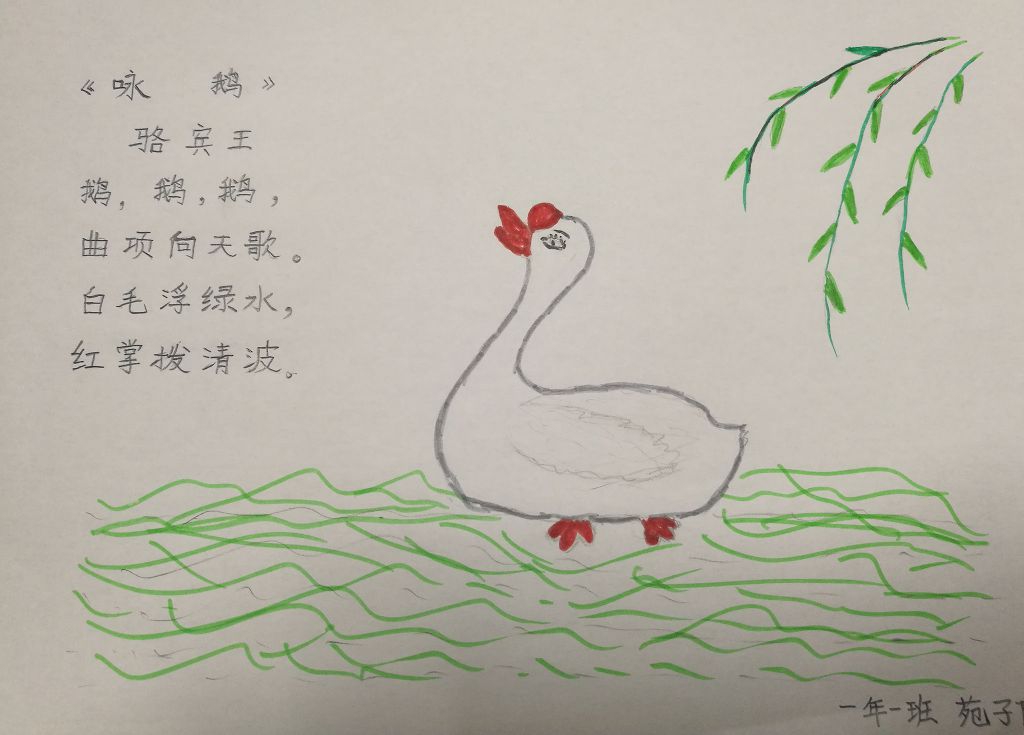 《咏 鹅》
骆宾王
鹅，鹅，鹅，
曲项向天歌。
白毛浮绿水，
红掌拨清波。
一年一班 苑子